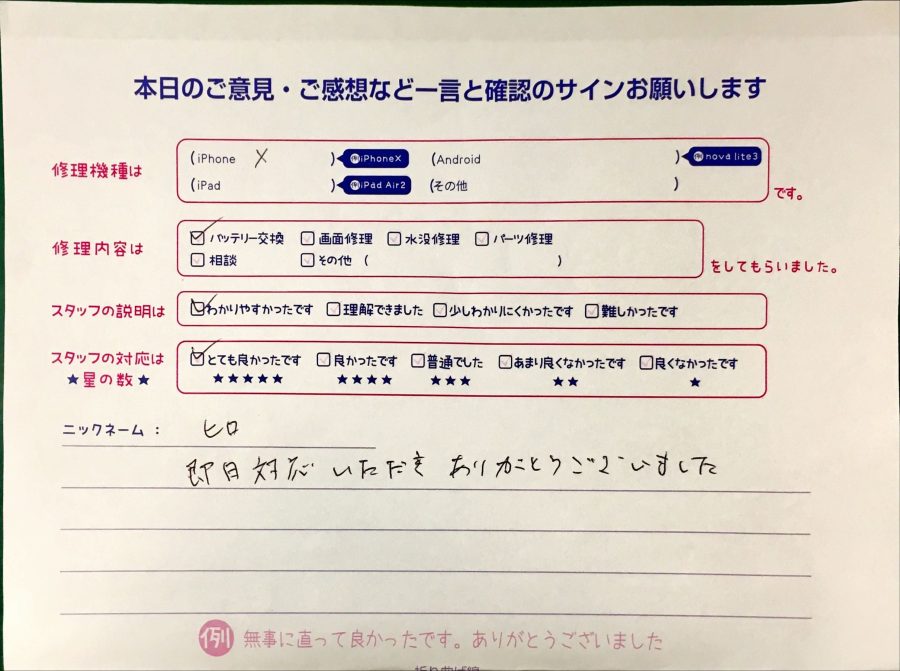 本日のご意見・ご感想など一言と確認のサインお願いします
修理機種は
(iPhone X ) iPhoneX (Android ) nova lite3
(iPad ) iPad Air2 (その他 )
です。
修理内容は
バッテリー交換 画面修理 水没修理 パーツ修理
相談 その他 ( )
をしてもらいました。
スタッフの説明は わかりやすかったです 理解できました 少しわかりにくかったです 難しかったです
スタッフの対応は とても良かったです 良かったです 普通でした あまり良くなかったです 良くなかったです
★星の数★ ★★★★★ ★★★★ ★★★ ★★ ★
ニックネーム: ヒロ
即日対応いただきありがとうございました
例 無事に直って良かったです。ありがとうございました